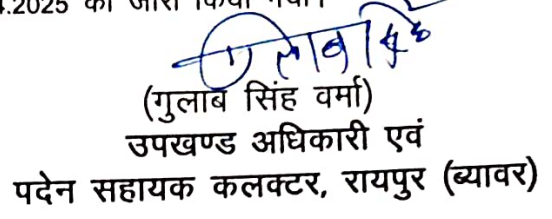 .2025 को जारी किया गया।
गुलाब सिंह
(गुलाब सिंह वर्मा)
उपखण्ड अधिकारी एवं
पदेन सहायक कलक्टर, रायपुर (ब्यावर)